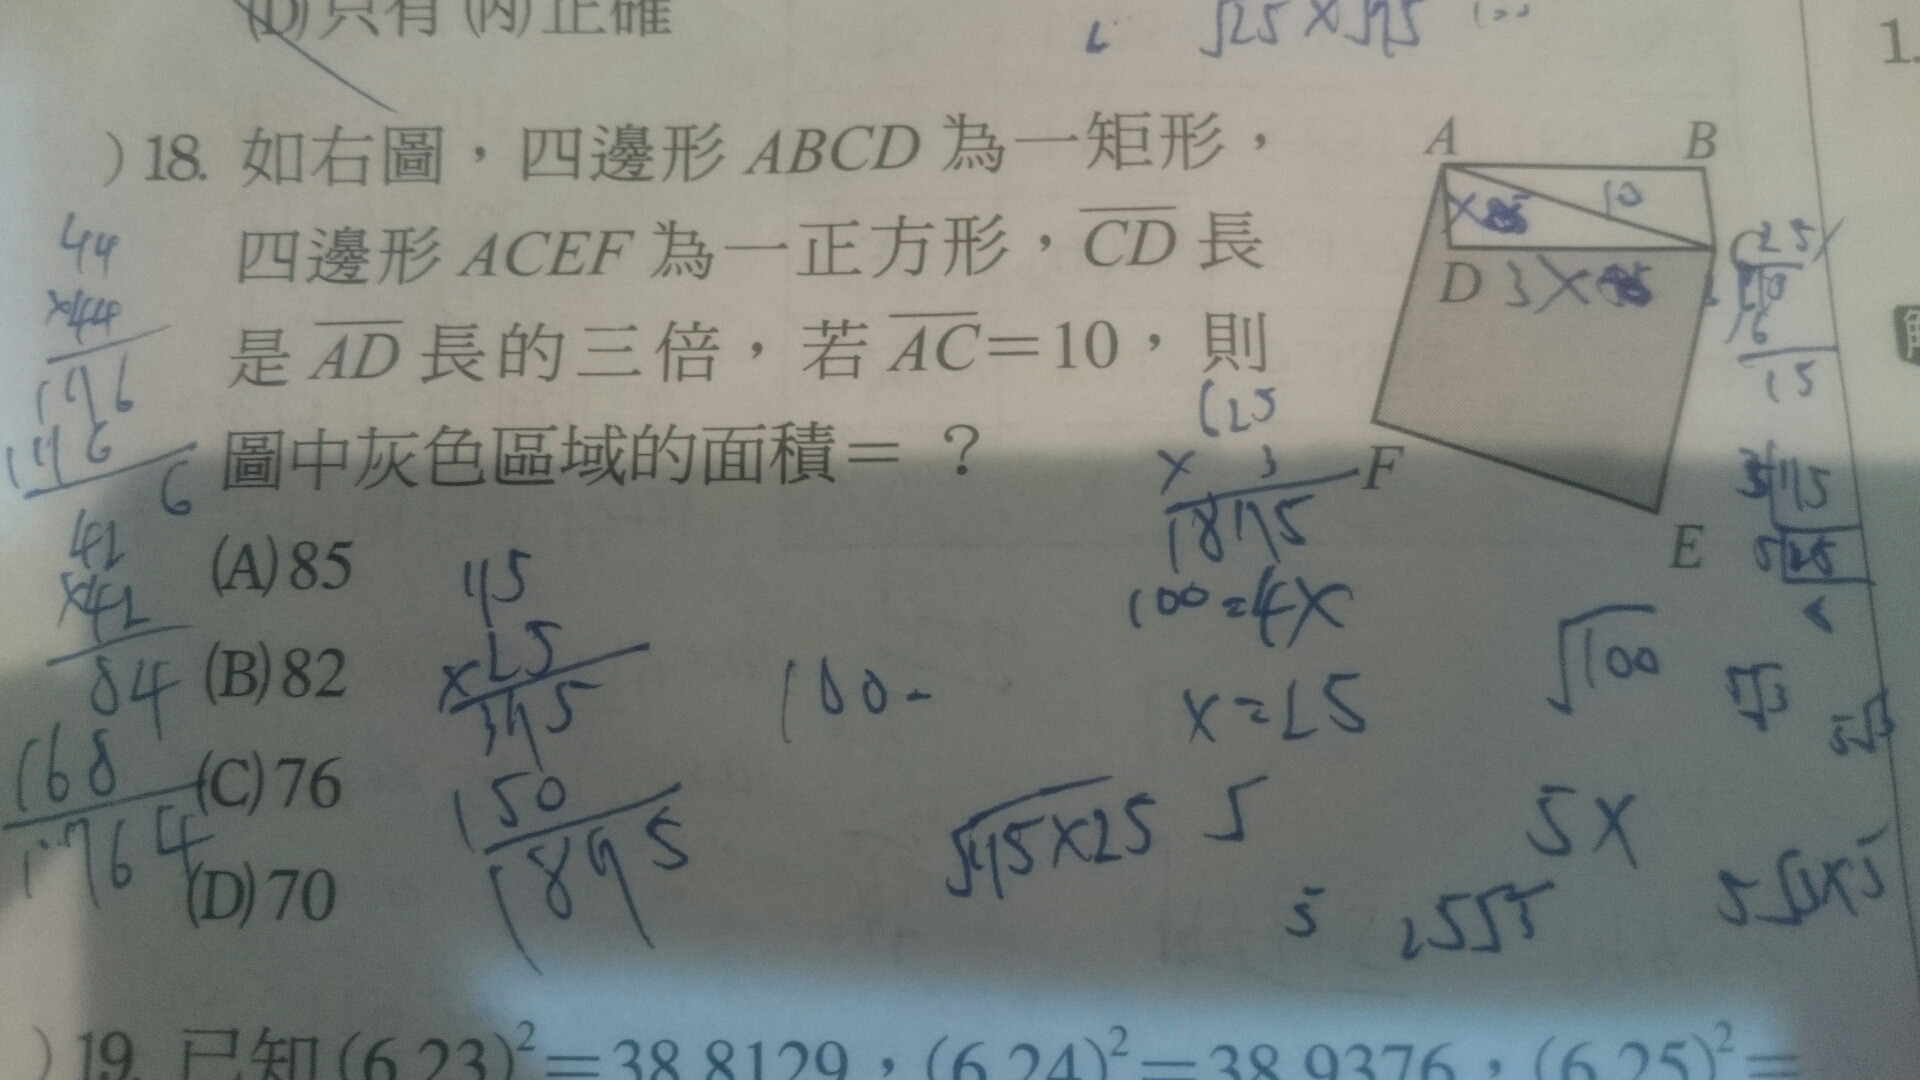 (D)只有(丙)正確
√25×√75
1.
)18. 如右圖，四邊形 ABCD 為一矩形，
四邊形 ACEF 為一正方形，CD 長
是 AD 長的三倍，若 AC=10，則
圖中灰色區域的面積= ？
(A)85
(B)82
(C)76
(D)70
A
B
10
D
3X
F
E
44
×44
176
6
42
×42
84
168
1764
75
×25
375
150
1875
100-
×3
1875
100=4X
X=25
√75×25
5
√100
5X
15
)19. 已知(6.23)²=38.8129，(6.24)²=38.9376，(6.25)²=